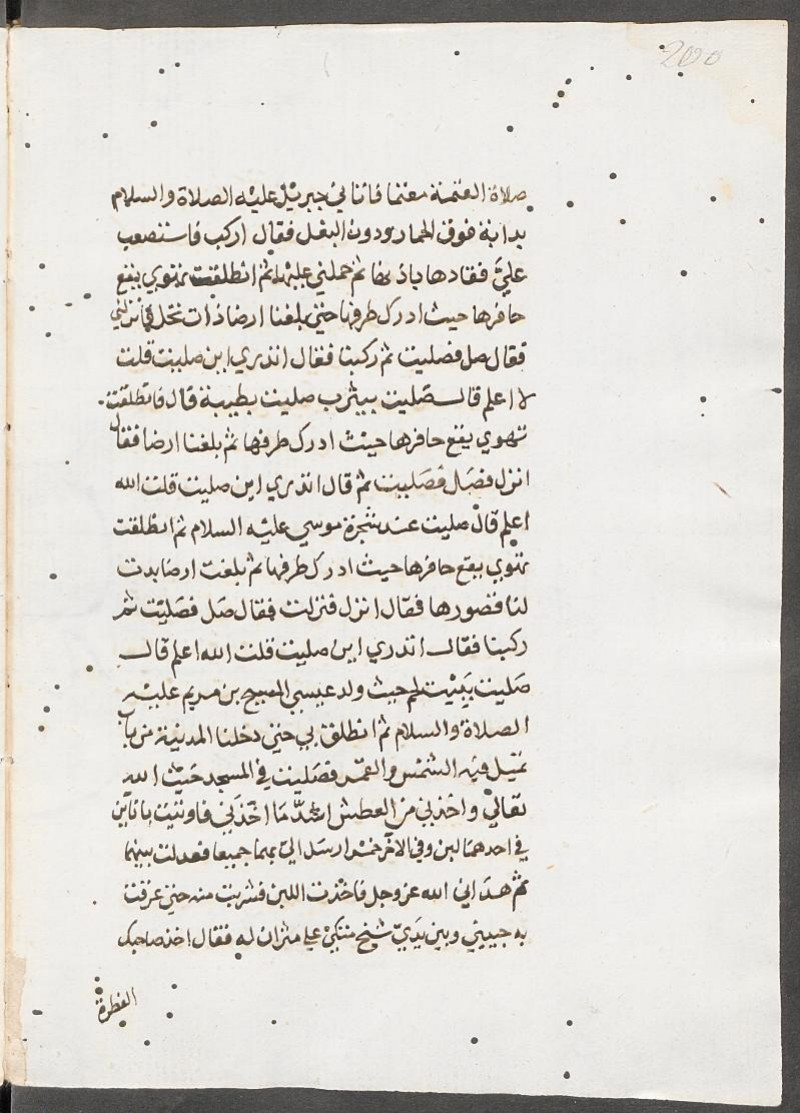 200
صلاة العتمة معتما فاتاني جبريل عليه الصلاة والسلام
بدابة فوق الحمار ودون البغل فقال اركب فاستصعب
علي فقادها باذنها ثم حملني عليها ثم انطلقت تهوي يقع
حافرها حيث ادرك طرفها حتى بلغنا ارضا ذات نخل فانزلني
فقال صل فصليت ثم ركبنا فقال اتدري اين صليت قلت
لا اعلم قال صليت بيثرب صليت بطيبة قال فانطلقت
تهوي يقع حافرها حيث ادرك طرفها ثم بلغنا ارضا فقال
انزل فصل فصليت ثم قال اتدري اين صليت قلت الله
اعلم قال صليت عند شجرة موسي عليه السلام ثم انطلقت
تهوي يقع حافرها حيث ادرك طرفها ثم بلغت ارضا بدت
لنا قصورها فقال انزل فنزلت فقال صل فصليت ثم
ركبنا فقال اتدري اين صليت قلت الله اعلم قال
صليت ببيت لحم حيث ولد عيسي المسيح بن مريم عليه
الصلاة والسلام ثم انطلق بي حتى دخلنا المدينة من باب
تميل فيه الشمس والقمر فصليت في المسجد حيث الله
تعالي واخذني من العطش اشد ما اخذني فاوتيت باناين
في احدهما لبن وفي الاخر خمر ارسل الي بهما جميعا فعدلت بينهما
ثم هداني الله عز وجل فاخذت اللبن فشربت منه حتى عرقت
به جبيني وبين يدي شيخ متكئ علي متزان له فقال اخذ صاحبك
الفطرة